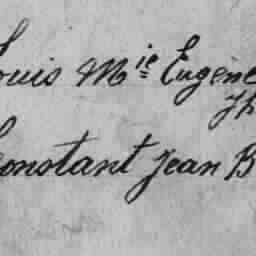 Louis Mie Eugène
Jh
Constant Jean B